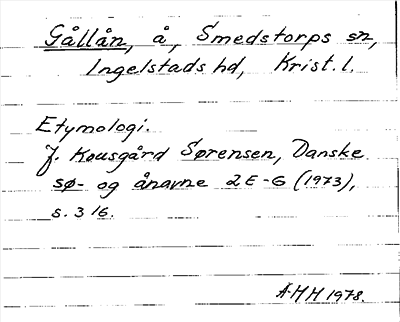 Gållån, å, Smedstorps sn,
Ingelstads hd, Krist. l.
Etymologi.
J. Kousgård Sørensen, Danske
sø- og ånavne 2 E-G (1973),
s. 316.
A-HH 1978.